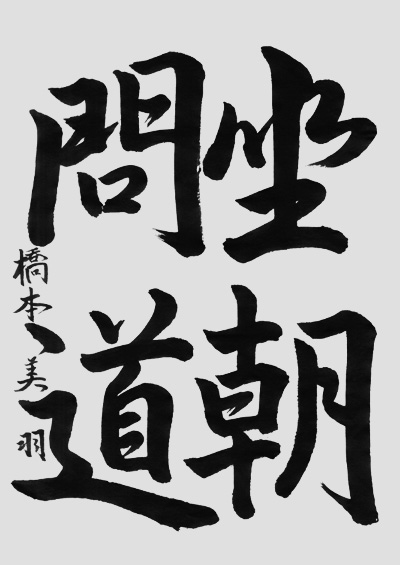 坐朝
問道
橋本美羽